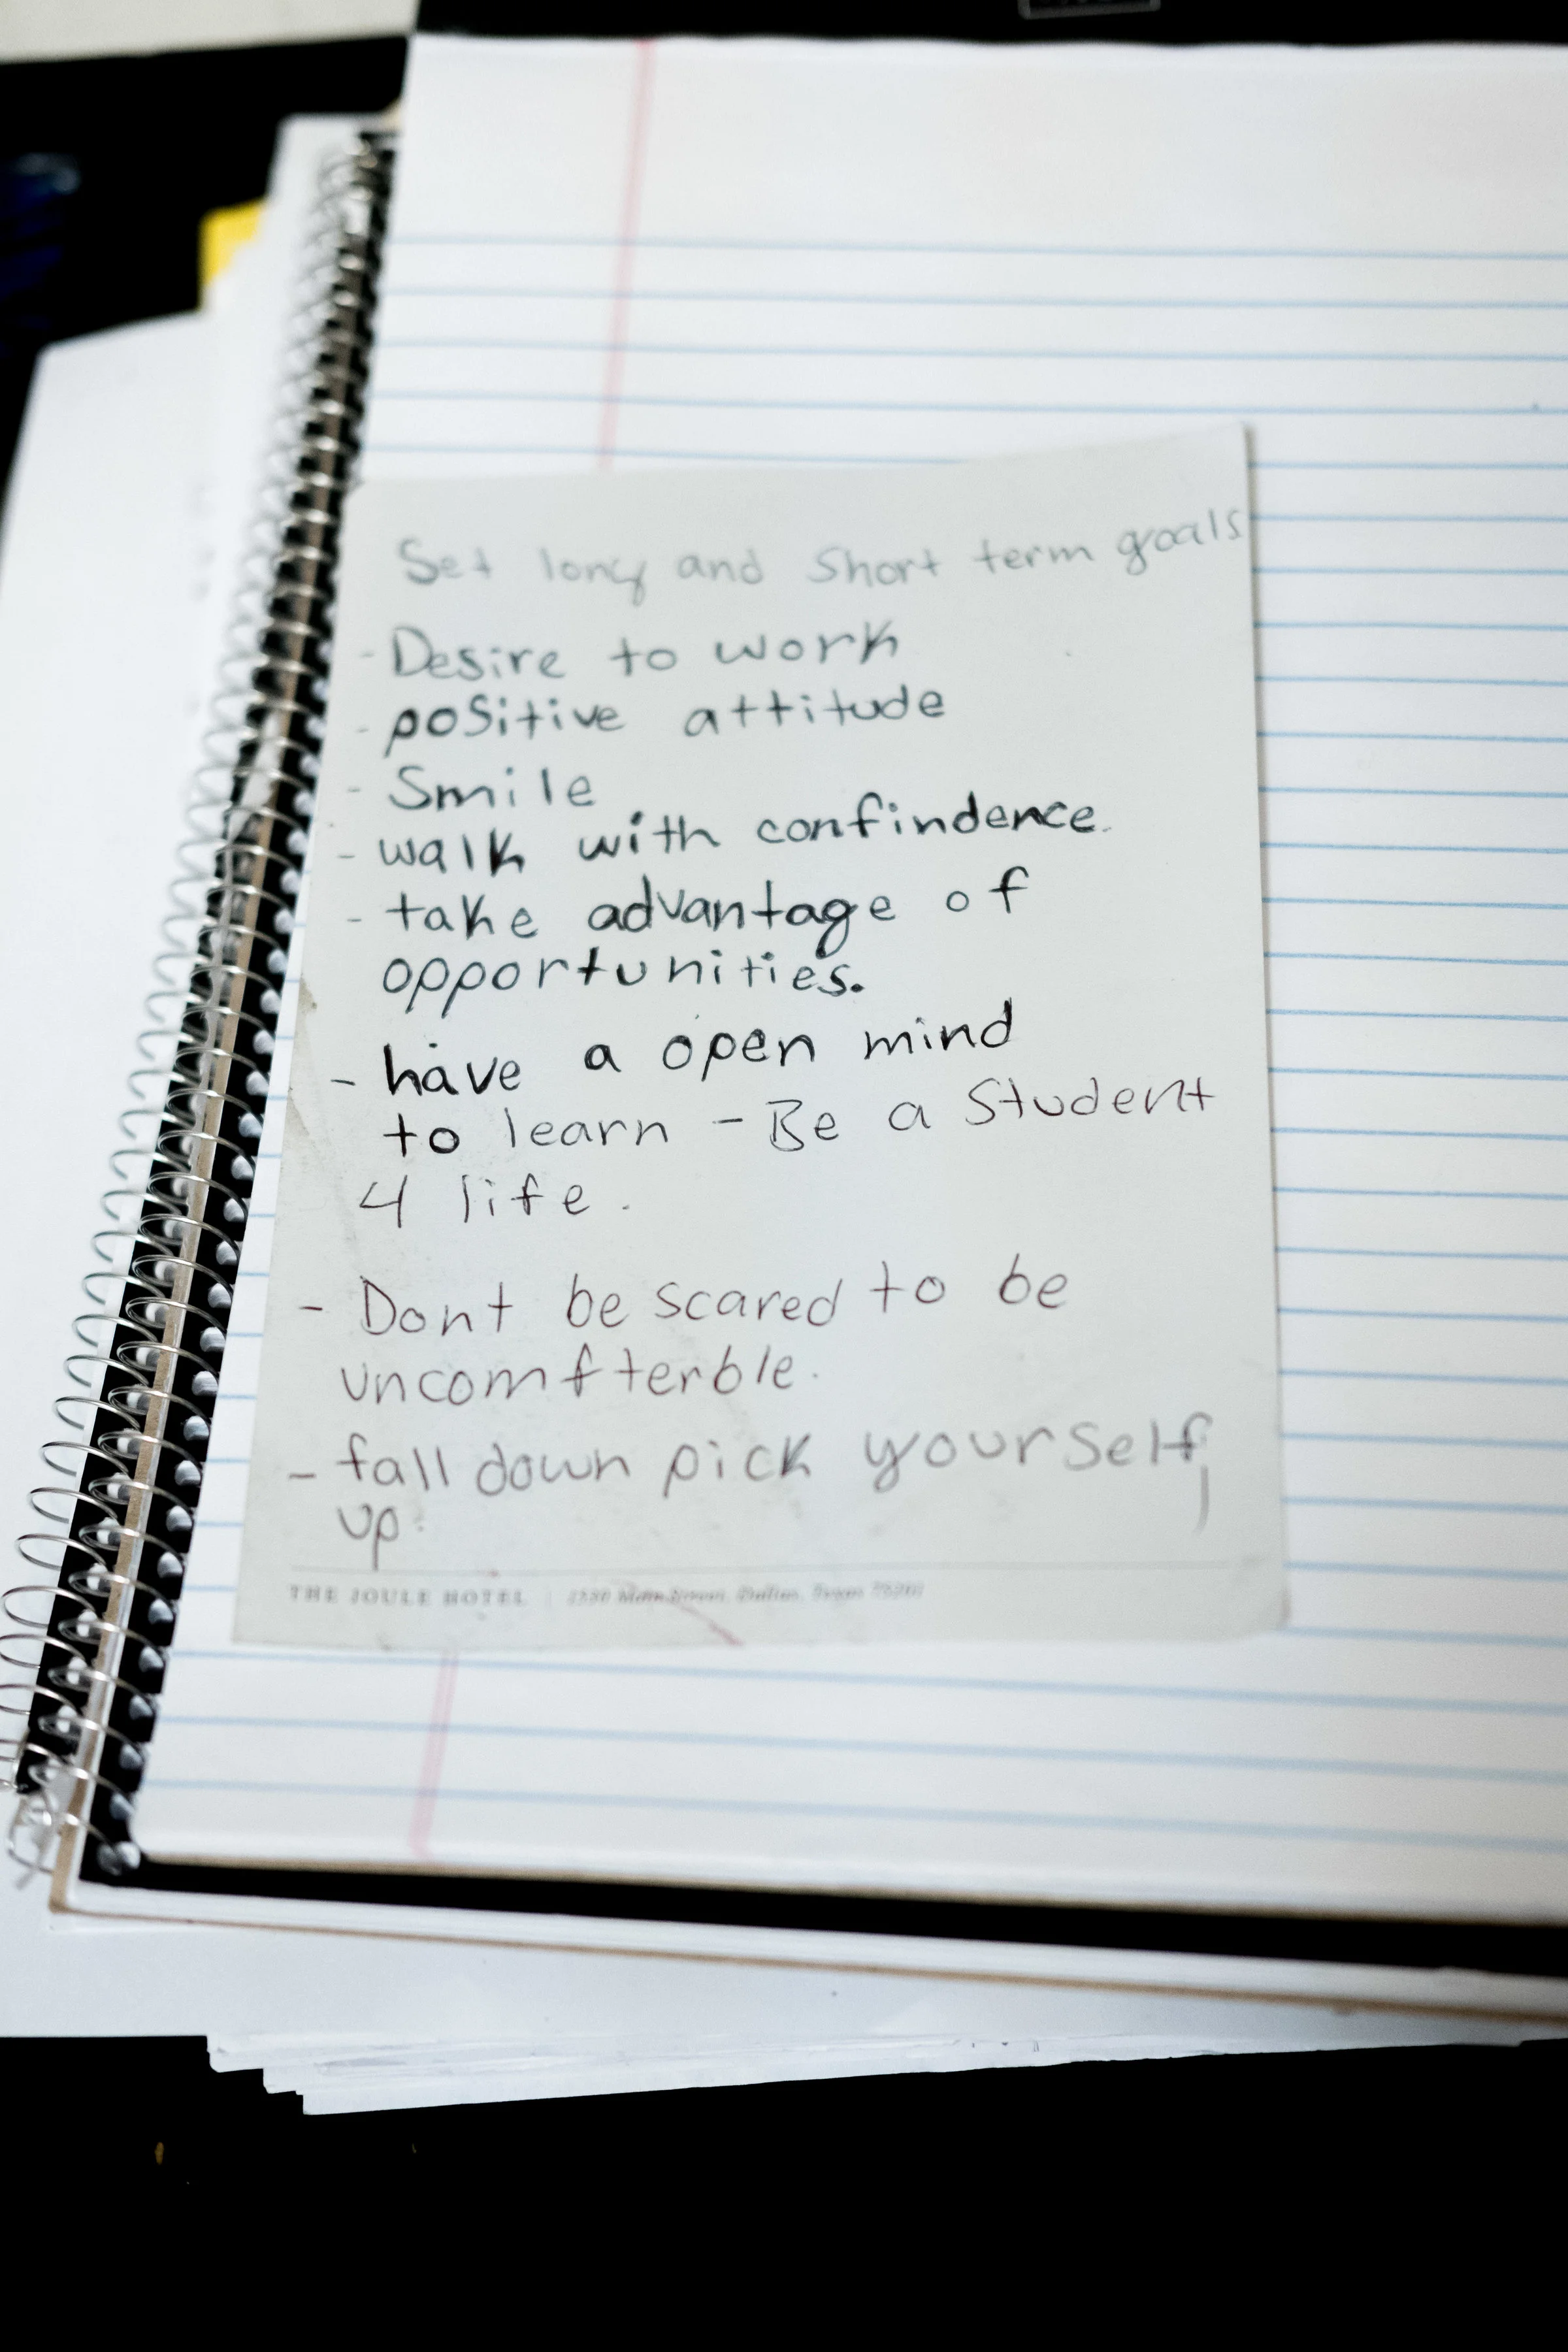 Set long and short term goals
- Desire to work
- positive attitude
- Smile
- walk with confindence.
- take advantage of
opportunities.
- have a open mind
to learn - Be a Student
4 life.
- Dont be scared to be
uncomfterble.
- fall down pick yourself
up.
THE JOULE HOTEL | 1530 Main Street, Dallas, Texas 75201